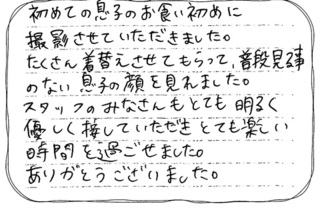 初めての息子のお食い初めに
撮影させていただきました。
たくさん着替えさせてもらって、普段見る事
のない息子の顔を見れました。
スタッフのみなさんもとても明るく
優しく接していただきとても楽しい
時間を過ごせました。
ありがとうございました。